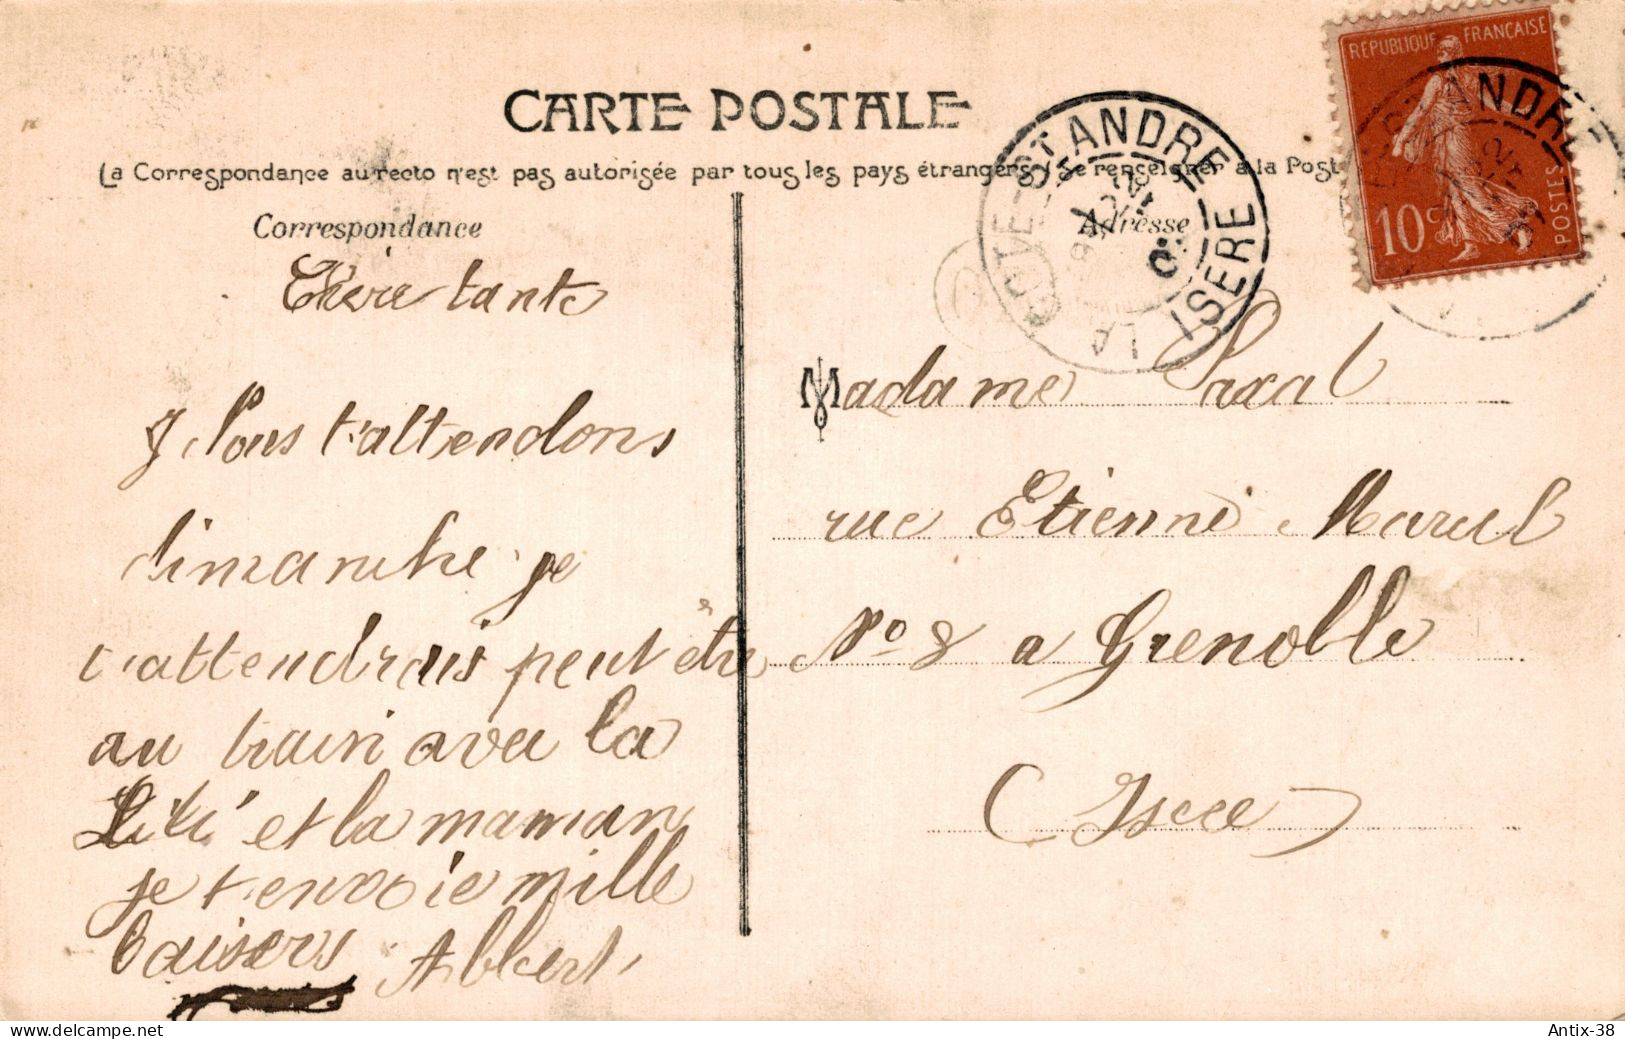 CARTE POSTALE
La Correspondance au recto n'est pas autorisée par tous les pays étrangers (Se renseigner à la Post
Correspondance
Chère tante
Nous t'attendons
dimanche je
t'attendrais peut être
au train avec la
Titi et la maman
je t'envoie mille
baisers Albert
Adresse
Madame
rue Etienne Marcel
No 8 a Grenoble
(Isere)
LA COTE-ST ANDRE
ISERE
REPUBLIQUE FRANÇAISE
10 c
POSTES
ST ANDRE
delcampe.net
Antix-38